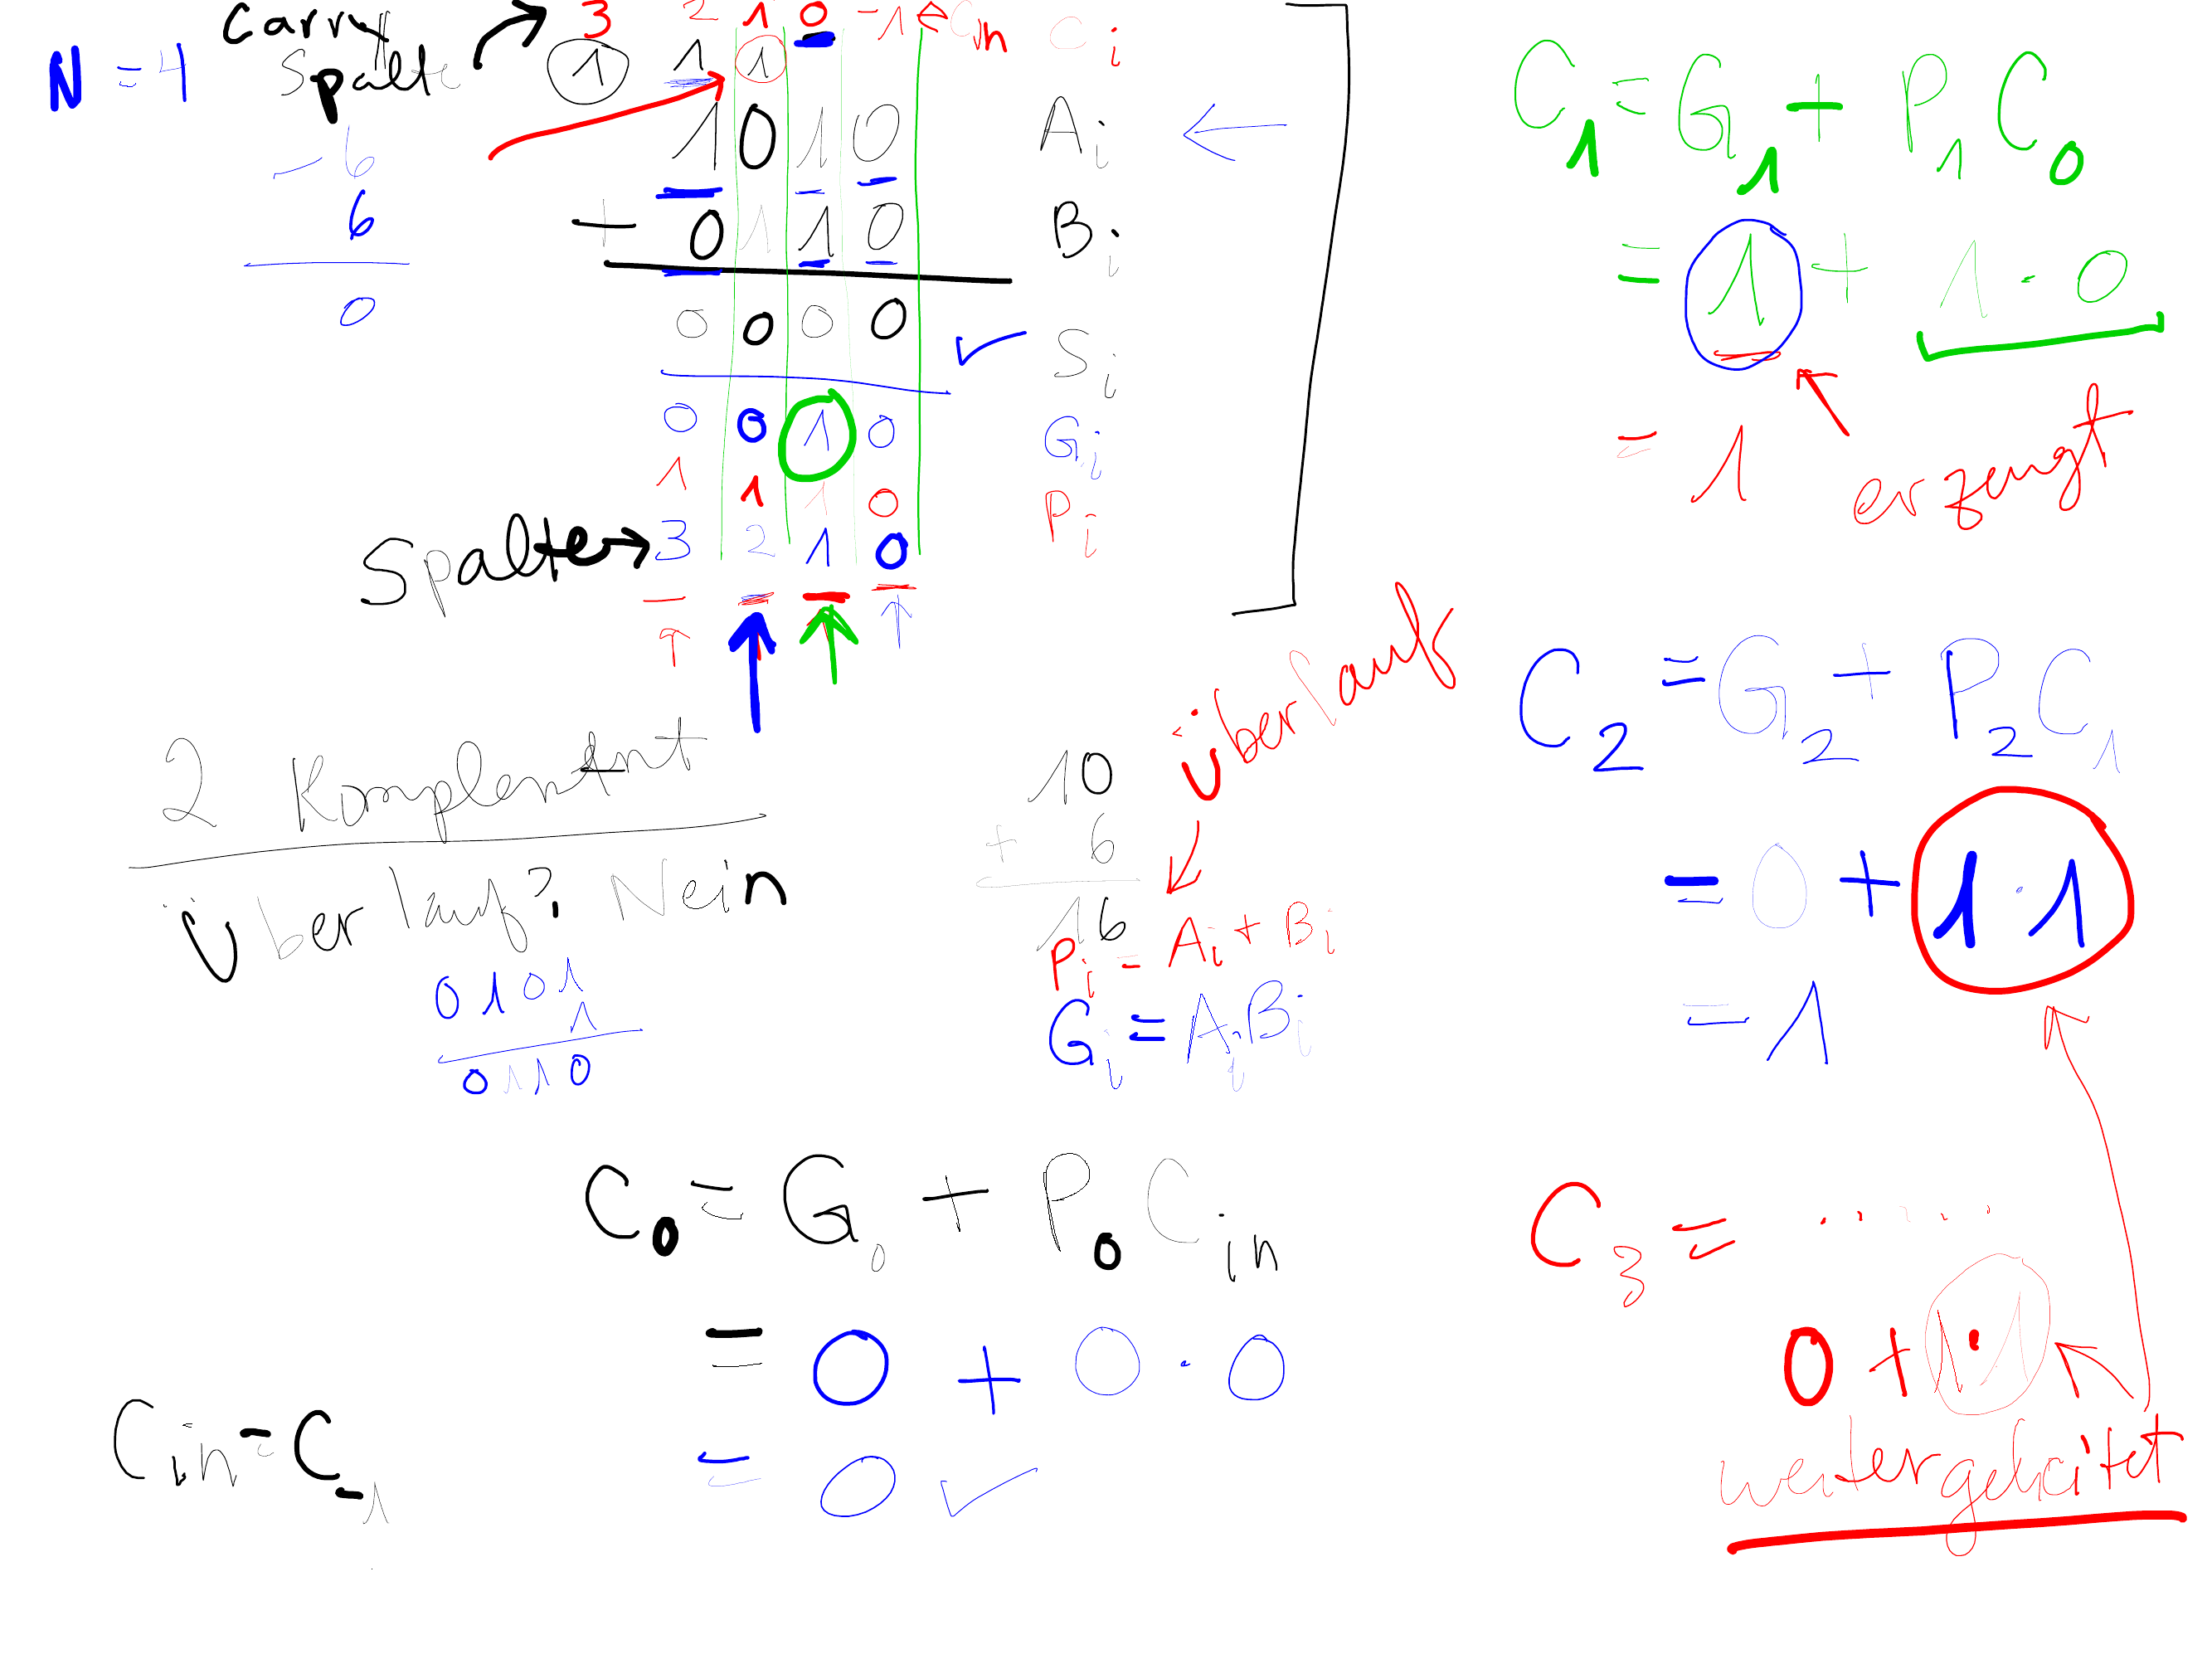 Carry 3 2 1 0 -1 ← Cin Ci
N = 4 Spalte 1 1 1
-6 1 0 1 0 Ai
6 + 0 1 1 0 Bi
0 0 0 0 0 Si
0 0 1 0 Gi
1 1 1 0 Pi
Spalte → 3 2 1 0
2 Komplement
Überlauf? Nein
0101
1
0110
10
+ 6
16
Überlauf
Pi = Ai + Bi
Gi = Ai Bi
C0 = G0 + P0 Cin
= 0 + 0 · 0
= 0 ✓
Cin = C-1
C1 = G1 + P1 C0
= 1 + 1 · 0
= 1 erzeugt
C2 = G2 + P2 C1
= 0 + 1 · 1
= 1
C3 = ......
0 + 1 · 1
weitergeleitet